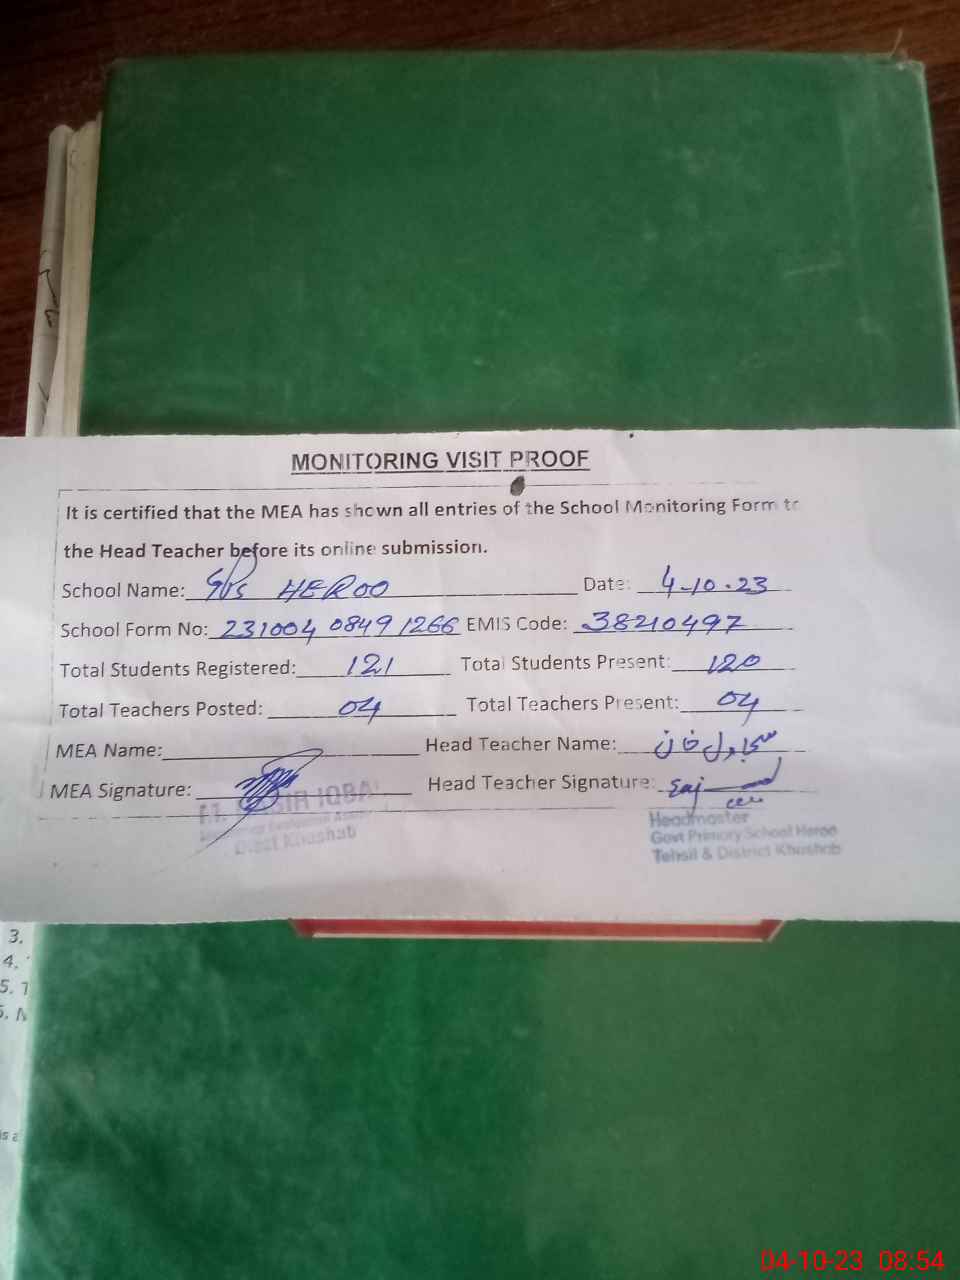 MONITORING VISIT PROOF
It is certified that the MEA has shown all entries of the School Monitoring Form to
the Head Teacher before its online submission.
School Name: GPS HEROO Date: 4-10-23
School Form No: 231004 0849 1266 EMIS Code: 38210497
Total Students Registered: 121 Total Students Present: 120
Total Teachers Posted: 04 Total Teachers Present: 04
MEA Name: Head Teacher Name: سجاول خان
MEA Signature: Head Teacher Signature:
IQBAL
Distt Khushab
Headmaster
Govt Primary School Heroo
Tehsil & District Khushab
3.
4.
5.
04-10-23 08:54